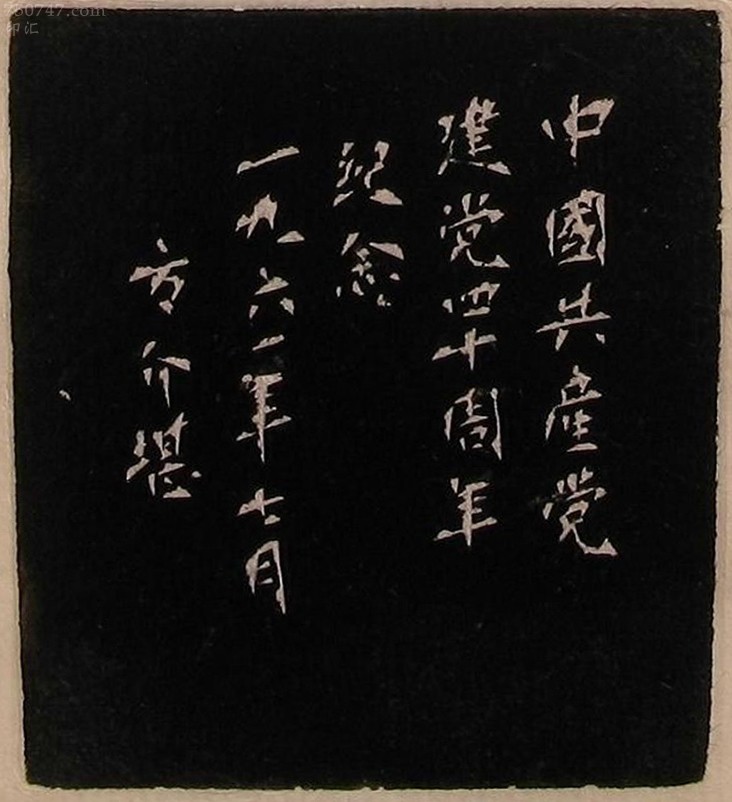 中國共產党
建党四十周年
纪念
一九六一年七月
方介堪
60747.com
印汇